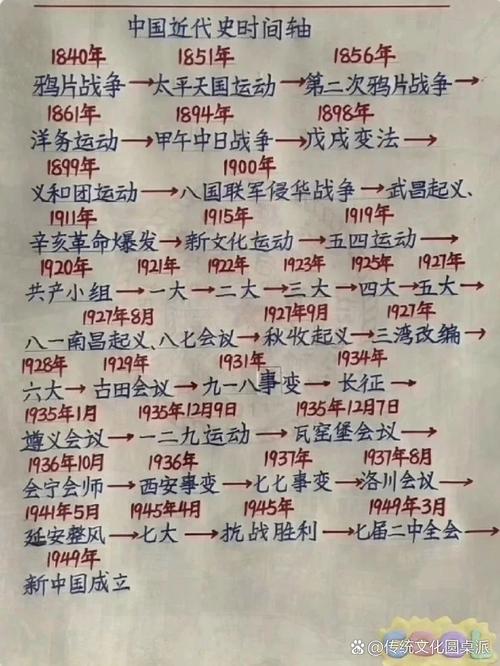 中国近代史时间轴
1840年 1851年 1856年
鸦片战争→太平天国运动→第二次鸦片战争→
1861年 1894年 1898年
洋务运动→甲午中日战争→戊戌变法→
1899年 1900年
义和团运动→八国联军侵华战争→武昌起义、
1911年 1915年 1919年
辛亥革命爆发→新文化运动→五四运动→
1920年 1921年 1922年 1923年 1925年 1927年
共产小组→一大→二大→三大→四大→五大→
1927年8月 1927年9月 1927年
八一南昌起义、八七会议→秋收起义→三湾改编→
1928年 1929年 1931年 1934年
六大→古田会议→九一八事变→长征→
1935年1月 1935年12月9日 1935年12月7日
遵义会议→一二九运动→瓦窑堡会议→
1936年10月 1936年 1937年 1937年8月
会宁会师→西安事变→七七事变→洛川会议→
1941年5月 1945年4月 1945年 1949年3月
延安整风→七大→抗战胜利→七届二中全会→
1949年
新中国成立
头条 @传统文化圆桌派